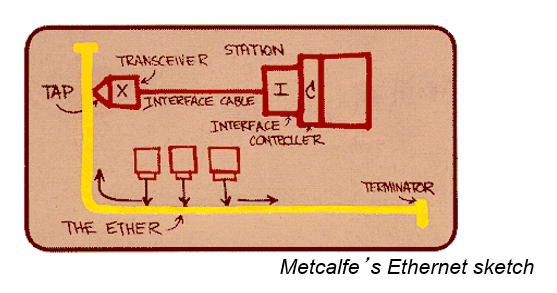 STATION
TRANSCEIVER
TAP
X
I
C
INTERFACE CABLE
INTERFACE
CONTROLLER
TERMINATOR
THE ETHER
Metcalfe’s Ethernet sketch